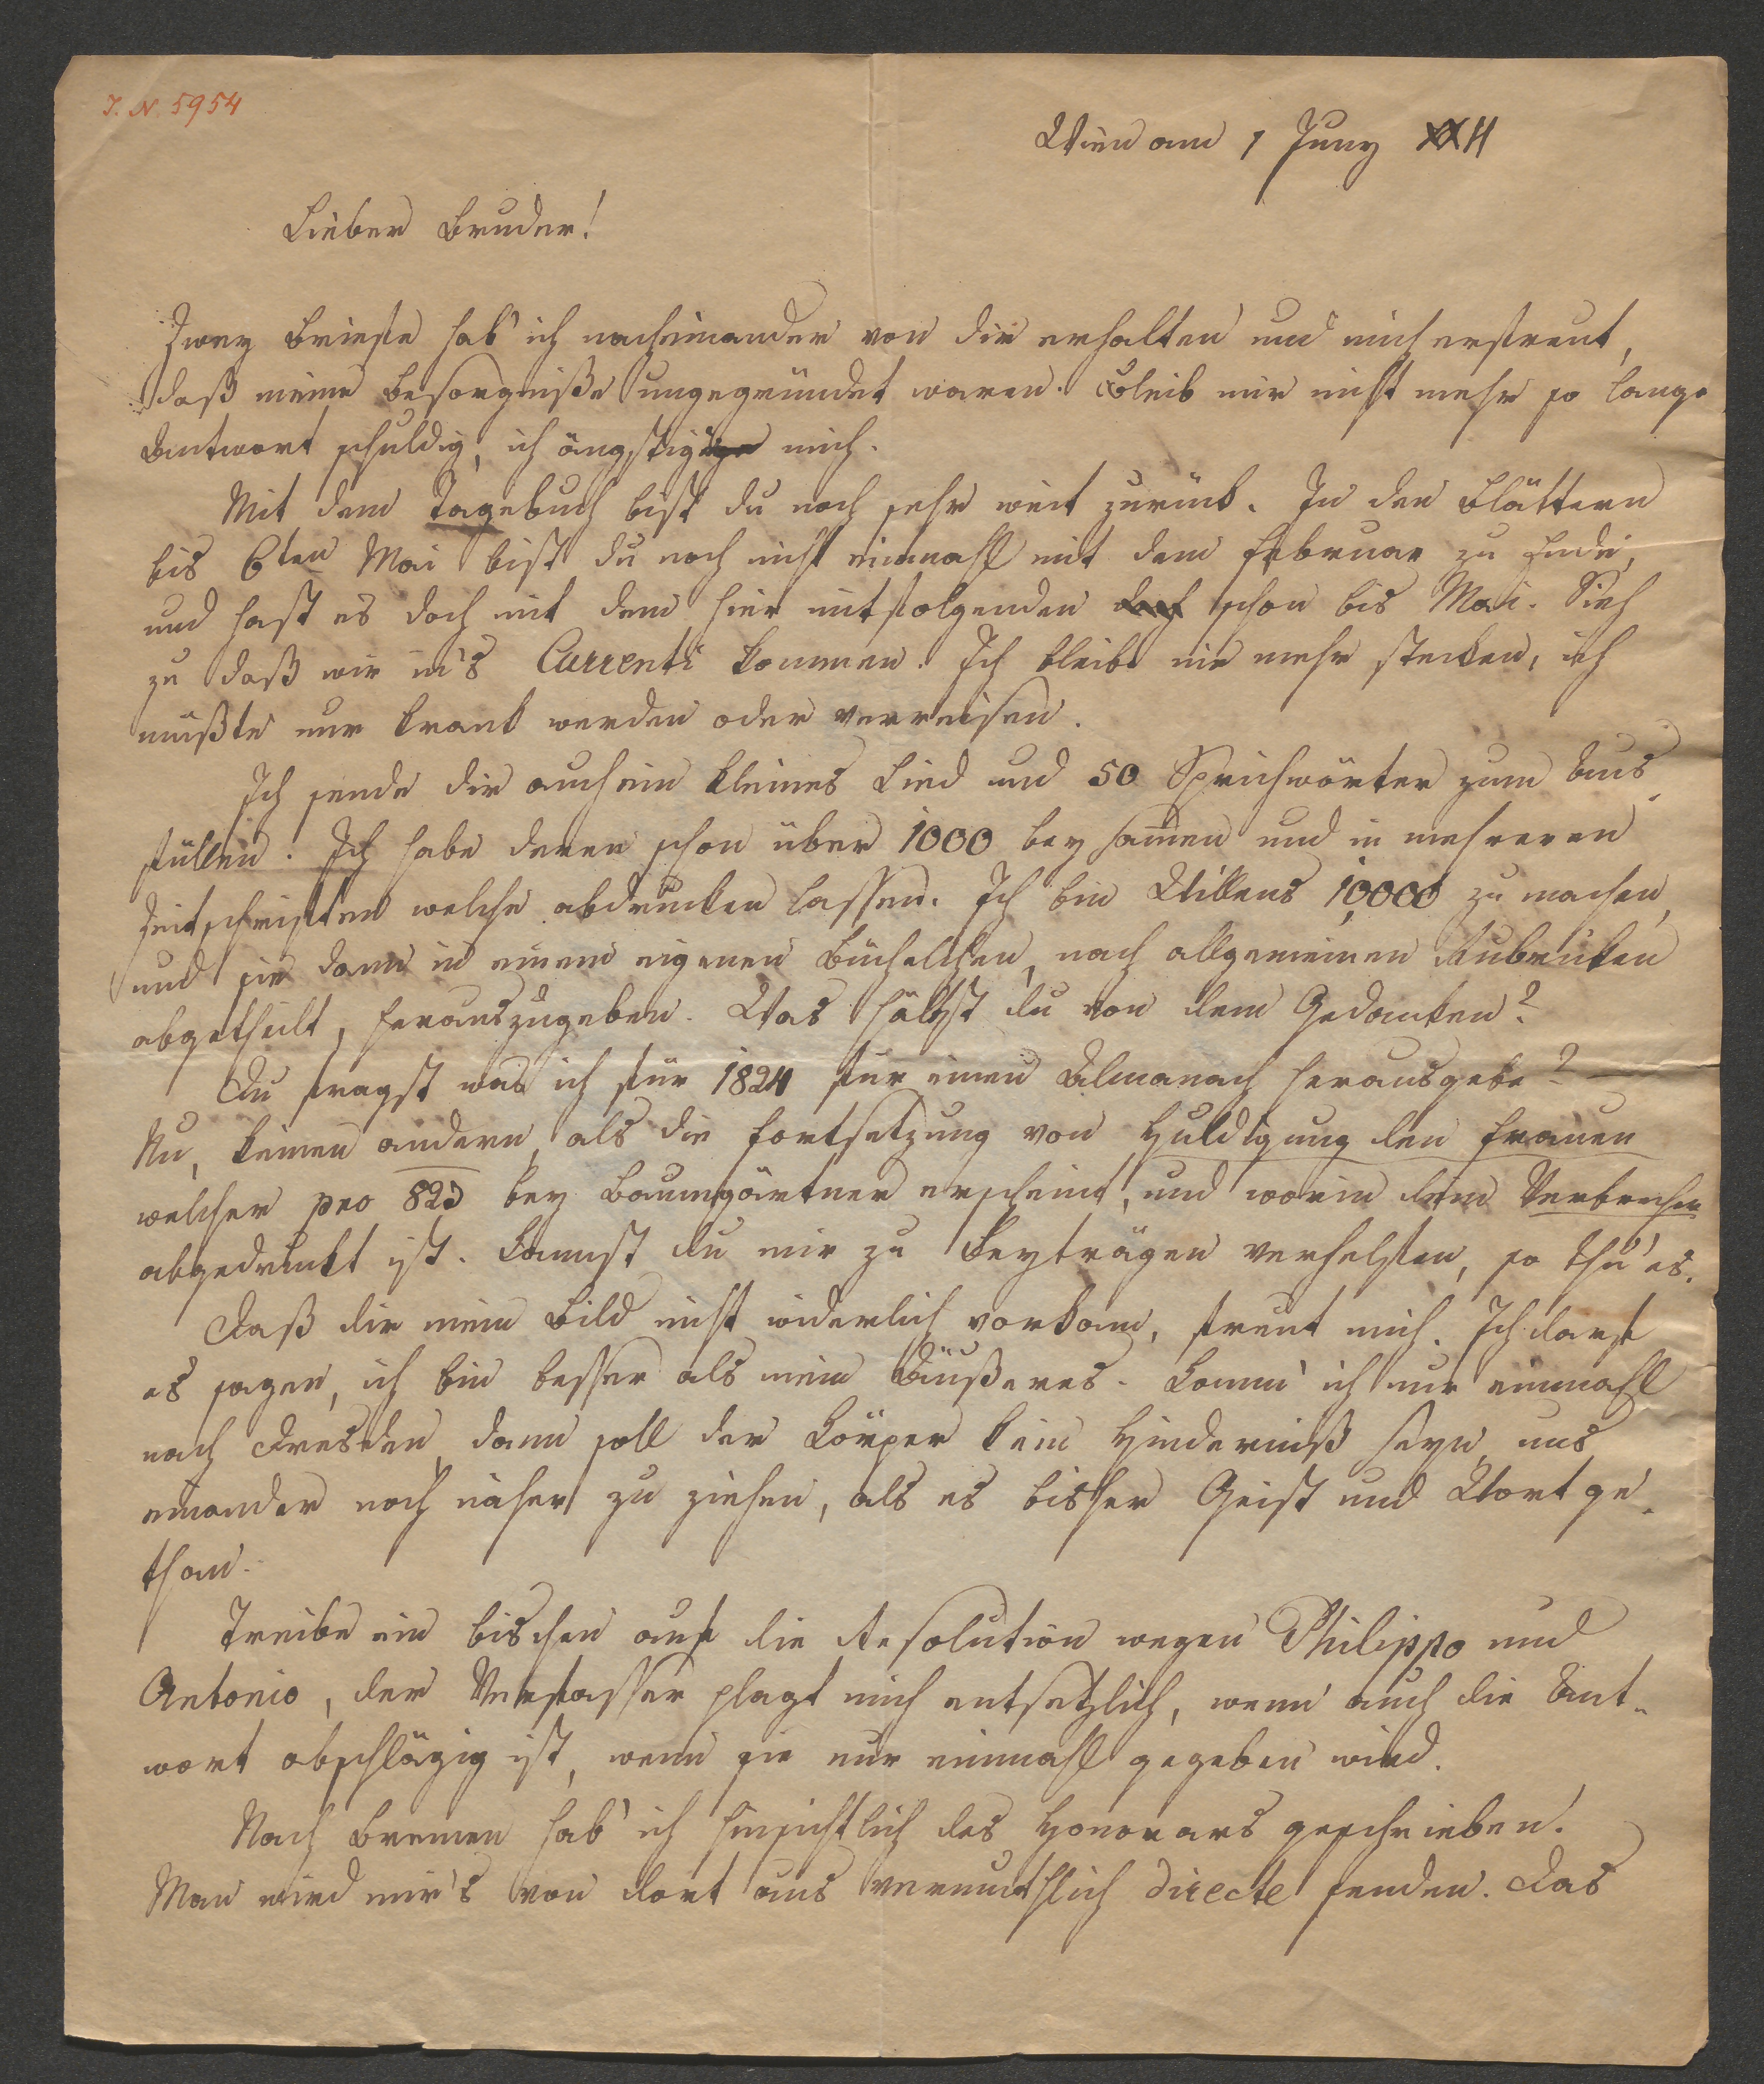 I. N. 5954
Wien am 1 Juny XXII
Lieber Bruder!
Zwey Briefe hab' ich nacheinander von dir erhalten und mich erfreut,
daß meine Besorgniße ungegründet waren. Bleib mir nicht mehr so lange
Antwort schuldig, ich ängstige mich.
Mit dem Tagebuch bist du noch sehr weit zurück. In den Blättern
bis 6ten Mai bist du noch nicht einmahl mit dem Februar zu Ende,
und hast es doch mit dem hier mitfolgenden doch schon bis Mai. Sieh
zu daß wir in's Currenti kommen. Ich bleibe nie mehr stecken, ich
müßte nur krank werden oder verreisen.
Ich sende dir auch ein kleines Lied und 50 Sprichwörter zum Aus-
füllen. Ich habe deren schon über 1000 beysam̅en und in mehreren
Zeitschriften welche abdrucken lassen. Ich bin Willens 10,000 zu machen,
und sie dann in einem eigenen Büchelchen, nach allgemeinen Rubricken
abgetheilt, herauszugeben. Was hältst du von dem Gedanken?
Du fragst was ich für 1824 für einen Almanach herausgebe? —
Nu, keinen andern, als die Fortsetzung von Huldigung den Frauen
welcher pro 823 bey Baumgärtner erscheint, und worin dein Verbrechen
abgedruckt ist. Kannst du mir zu Beyträgen verhelfen, so thu' es.
Daß dir mein Bild nicht widerlich vorkam, freut mich. Ich darf
es sagen, ich bin besser als mein Äußeres. Komm' ich nur einmahl
nach Dresden, dann soll der Körper kein Hinderniß seyn, uns
einander noch näher zu ziehen, als es bisher Geist und Wort ge-
than.
Treibe ein bischen auf die Resolution wegen Philippo und
Antonio, der Verfasser plagt mich entsetzlich, wenn auch die Ant-
wort abschlägig ist, wenn sie nur einmahl gegeben wird.
Nach Bremen hab' ich hinsichtlich des Honorars geschrieben.
Man wird mir's von dort aus vermuthlich directe senden. Das